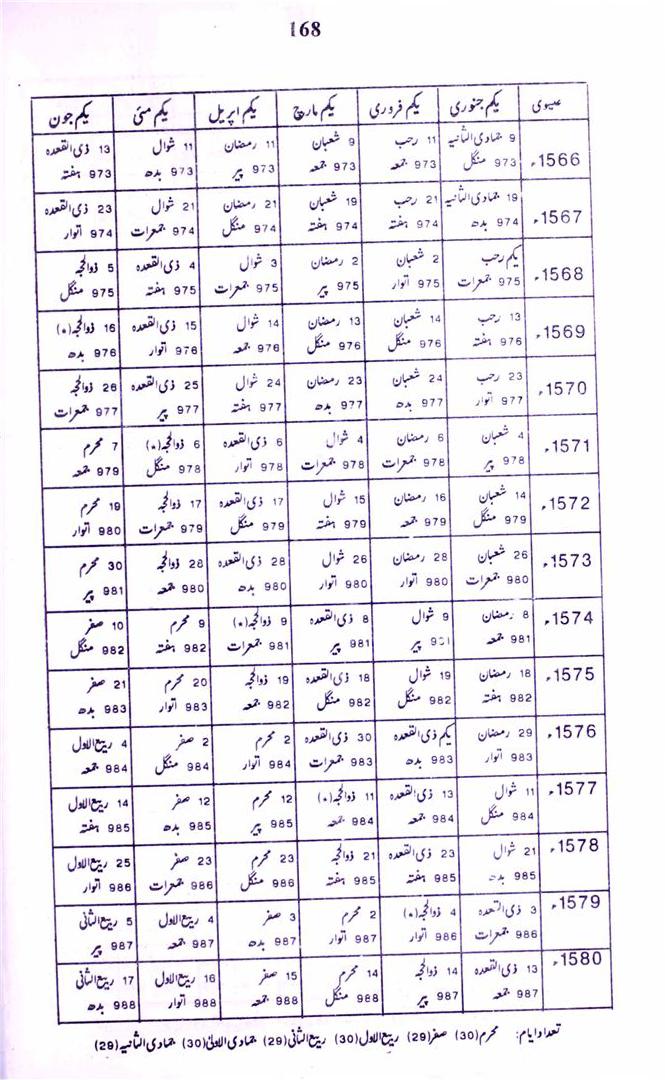 168
عیسوی یکم جنوری یکم فروری یکم مارچ یکم اپریل یکم مئی یکم جون
1566ء 9 جمادی الثانیہ 11 رجب 9 شعبان 11 رمضان 11 شوال 13 ذی القعدہ
973 منگل 973 جمعہ 973 جمعہ 973 پیر 973 بدھ 973 ہفتہ
1567ء 19 جمادی الثانیہ 21 رجب 19 شعبان 21 رمضان 21 شوال 23 ذی القعدہ
974 بدھ 974 ہفتہ 974 ہفتہ 974 منگل 974 جمعرات 974 اتوار
1568ء یکم رجب 2 شعبان 2 رمضان 3 شوال 4 ذی القعدہ 5 ذوالحجہ
975 جمعرات 975 اتوار 975 پیر 975 جمعرات 975 ہفتہ 975 منگل
1569ء 13 رجب 14 شعبان 13 رمضان 14 شوال 15 ذی القعدہ 16 ذوالحجہ (*)
976 ہفتہ 976 منگل 976 منگل 976 جمعہ 976 اتوار 976 بدھ
1570ء 23 رجب 24 شعبان 23 رمضان 24 شوال 25 ذی القعدہ 26 ذوالحجہ
977 اتوار 977 بدھ 977 بدھ 977 ہفتہ 977 پیر 977 جمعرات
1571ء 4 شعبان 6 رمضان 4 شوال 6 ذی القعدہ 6 ذوالحجہ (*) 7 محرم
978 پیر 978 جمعرات 978 جمعرات 978 اتوار 978 منگل 979 جمعہ
1572ء 14 شعبان 16 رمضان 15 شوال 17 ذی القعدہ 17 ذوالحجہ 19 محرم
979 منگل 979 جمعہ 979 ہفتہ 979 منگل 979 جمعرات 980 اتوار
1573ء 26 شعبان 28 رمضان 26 شوال 28 ذی القعدہ 28 ذوالحجہ 30 محرم
980 جمعرات 980 اتوار 980 اتوار 980 بدھ 980 جمعہ 981 پیر
1574ء 8 رمضان 9 شوال 8 ذی القعدہ 9 ذوالحجہ (*) 9 محرم 10 صفر
981 جمعہ 981 پیر 981 پیر 981 جمعرات 982 ہفتہ 982 منگل
1575ء 18 رمضان 19 شوال 18 ذی القعدہ 19 ذوالحجہ 20 محرم 21 صفر
982 ہفتہ 982 منگل 982 منگل 982 جمعہ 983 اتوار 983 بدھ
1576ء 29 رمضان یکم ذی القعدہ 30 ذی القعدہ 2 محرم 2 صفر 4 ربیع الاول
983 اتوار 983 بدھ 983 جمعرات 984 اتوار 984 منگل 984 جمعہ
1577ء 11 شوال 13 ذی القعدہ 11 ذوالحجہ (*) 12 محرم 12 صفر 14 ربیع الاول
984 منگل 984 جمعہ 984 جمعہ 985 پیر 985 بدھ 985 ہفتہ
1578ء 21 شوال 23 ذی القعدہ 21 ذوالحجہ 23 محرم 23 صفر 25 ربیع الاول
985 بدھ 985 ہفتہ 985 ہفتہ 986 منگل 986 جمعرات 986 اتوار
1579ء 3 ذی القعدہ 4 ذوالحجہ (*) 2 محرم 3 صفر 4 ربیع الاول 5 ربیع الثانی
986 جمعرات 986 اتوار 987 اتوار 987 بدھ 987 جمعہ 987 پیر
1580ء 13 ذی القعدہ 14 ذوالحجہ 14 محرم 15 صفر 16 ربیع الاول 17 ربیع الثانی
987 جمعہ 987 پیر 988 منگل 988 جمعہ 988 اتوار 988 بدھ
تعداد ایام: محرم (30) صفر (29) ربیع الاول (30) ربیع الثانی (29) جمادی الاولیٰ (30) جمادی الثانیہ (29)